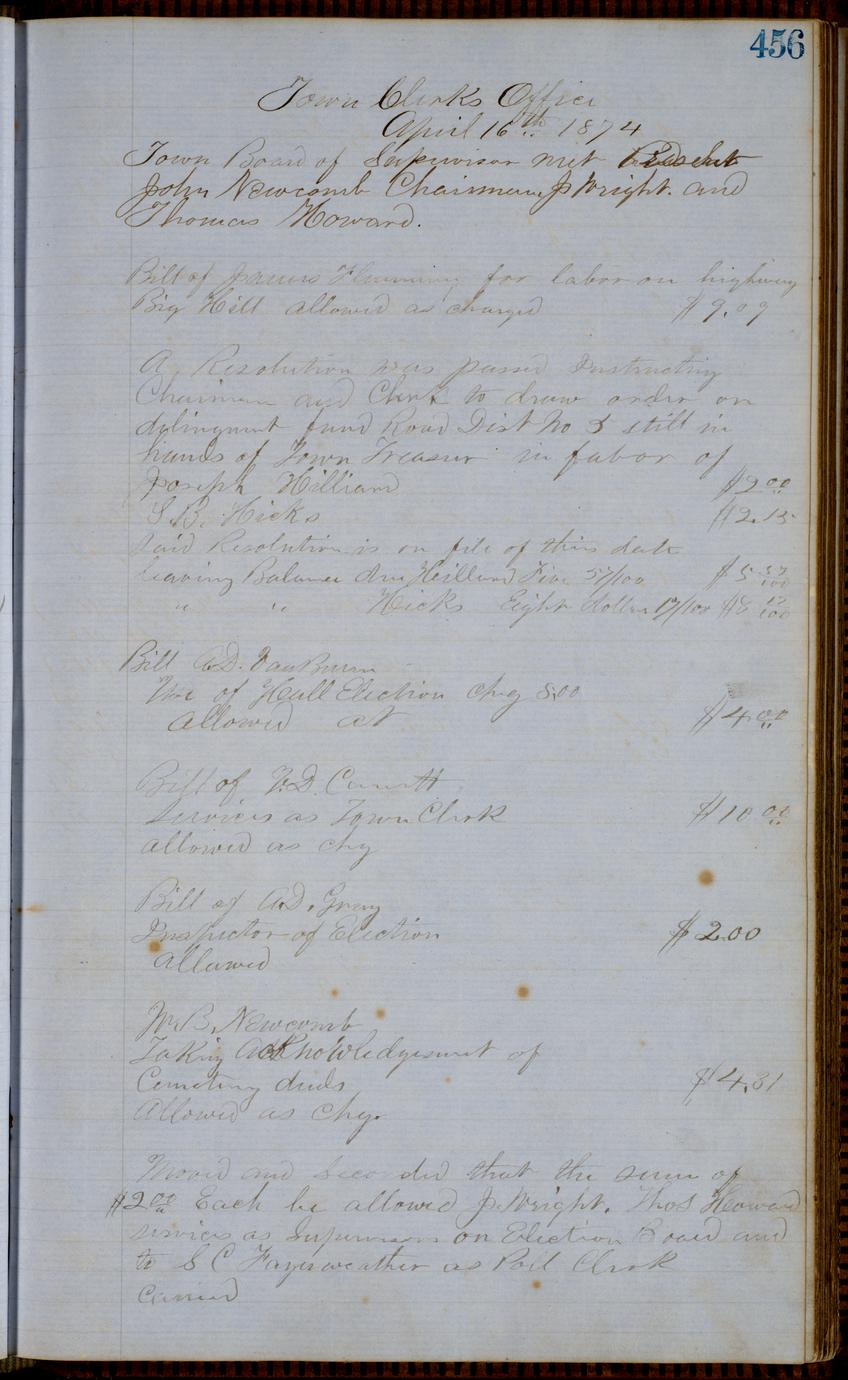 456
Town Clerks Office
April 16th 1874
Town Board of Supervisor met Present
John Newcomb Chairman, J. Wright. and
Thomas Howard.
Bill of James Flemming for labor on highway
Big Hill allowed as charged $9.09
A Resolution was passed Instructing
Chairman and Clerk to draw order on
delinquent fund Road Dist No 5 still in
hands of Town Treasur in fabor of
Joseph Hilliard $2.00
S.B. Hicks $2.15
Said Resolution is on file of this date
leaving Balance due Hilliard Five 57/100 $5 57/100
" " Hicks Eight dollars 17/100 $8 17/100
Bill A.D. VanBuren
Use of Hall Election chg 5.00
Allowed at $4.00
Bill of V.D.
Services as Town Clerk $10.00
allowed as chg
Bill of A.D. Gray
Inspector of Election $2.00
Allowed
W.B. Newcomb
Taking Acknowledgement of
Cemetery deeds $4.31
Allowed as chg.
Moved and Seconded that the sum of
$2.00 Each be allowed J. Wright. Thos Howard
services as Supervisors on Election Board and
to S C Fayerweather as Poll Clerk
Carried